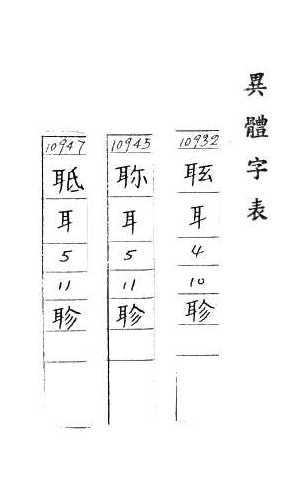 異體字表
10932
耳
4
10
聄
10945
耳
5
11
聄
10947
耳
5
11
聄